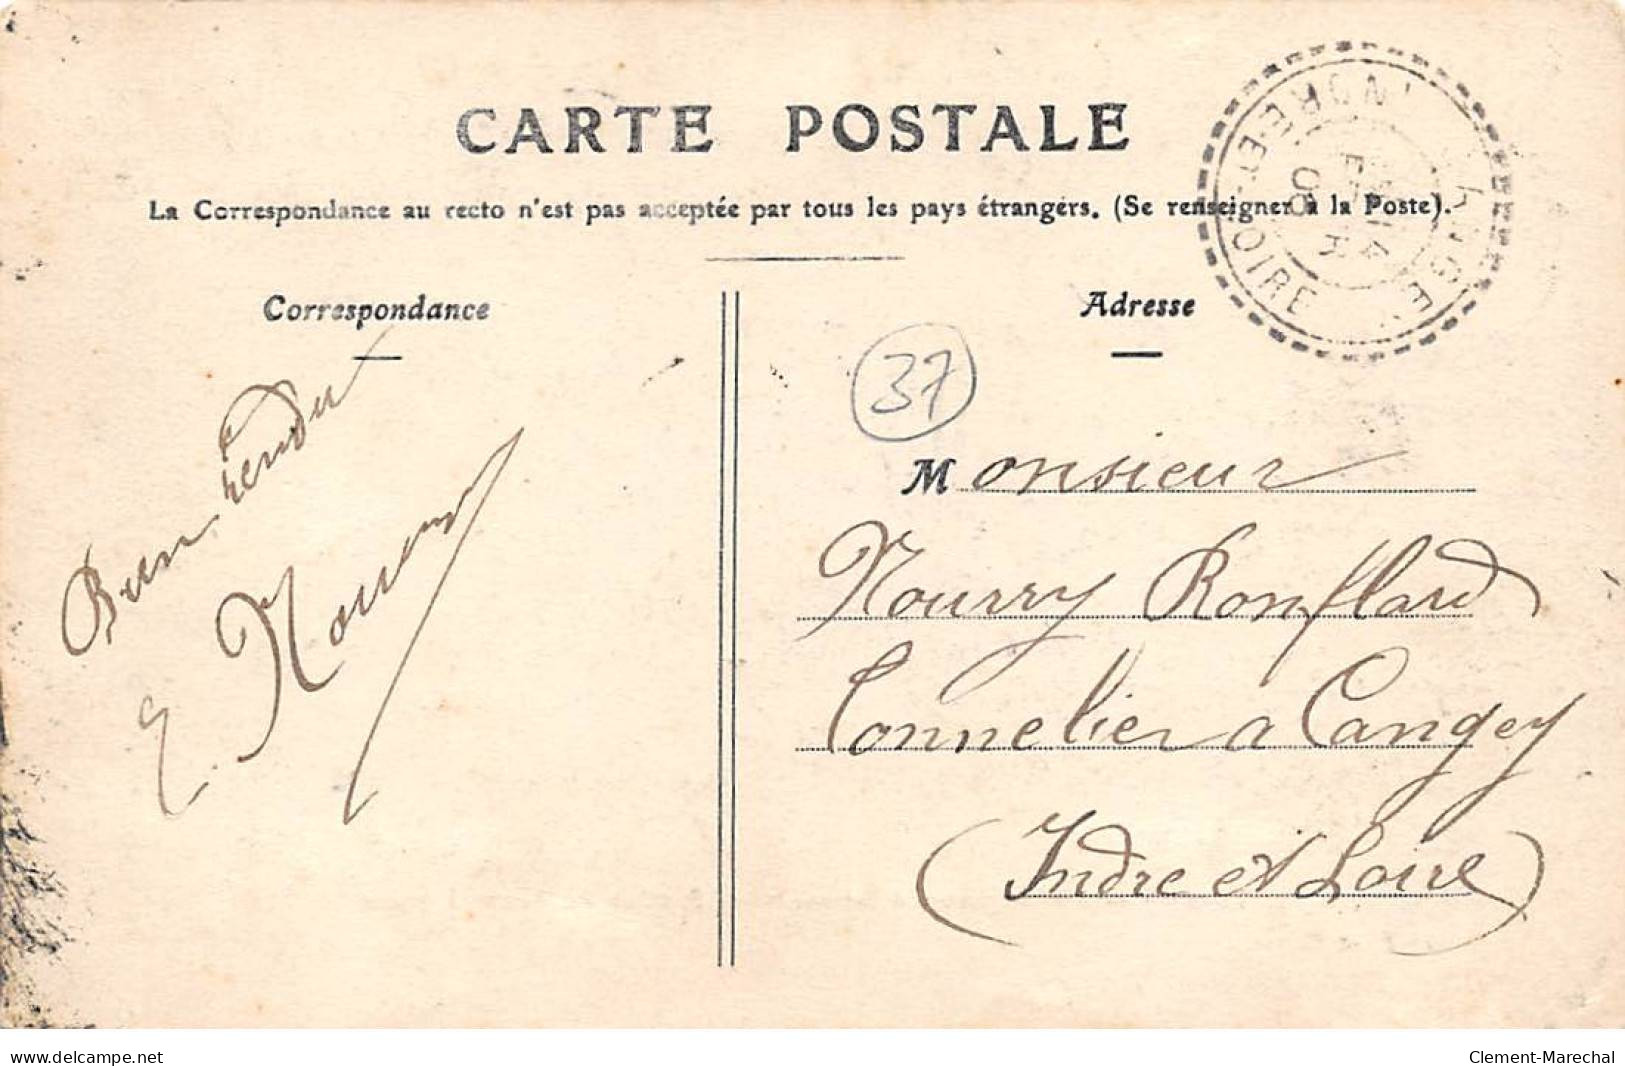 CARTE POSTALE
La Correspondance au recto n'est pas acceptée par tous les pays étrangers. (Se renseigner à la Poste).
Correspondance
Bien rendu
E. Nourry
Adresse
37
Monsieur
Nourry Ronflard
Tonnelier a Cangey
(Indre et Loire)
INDRE-ET-LOIRE
delcampe.net
Clement-Marechal